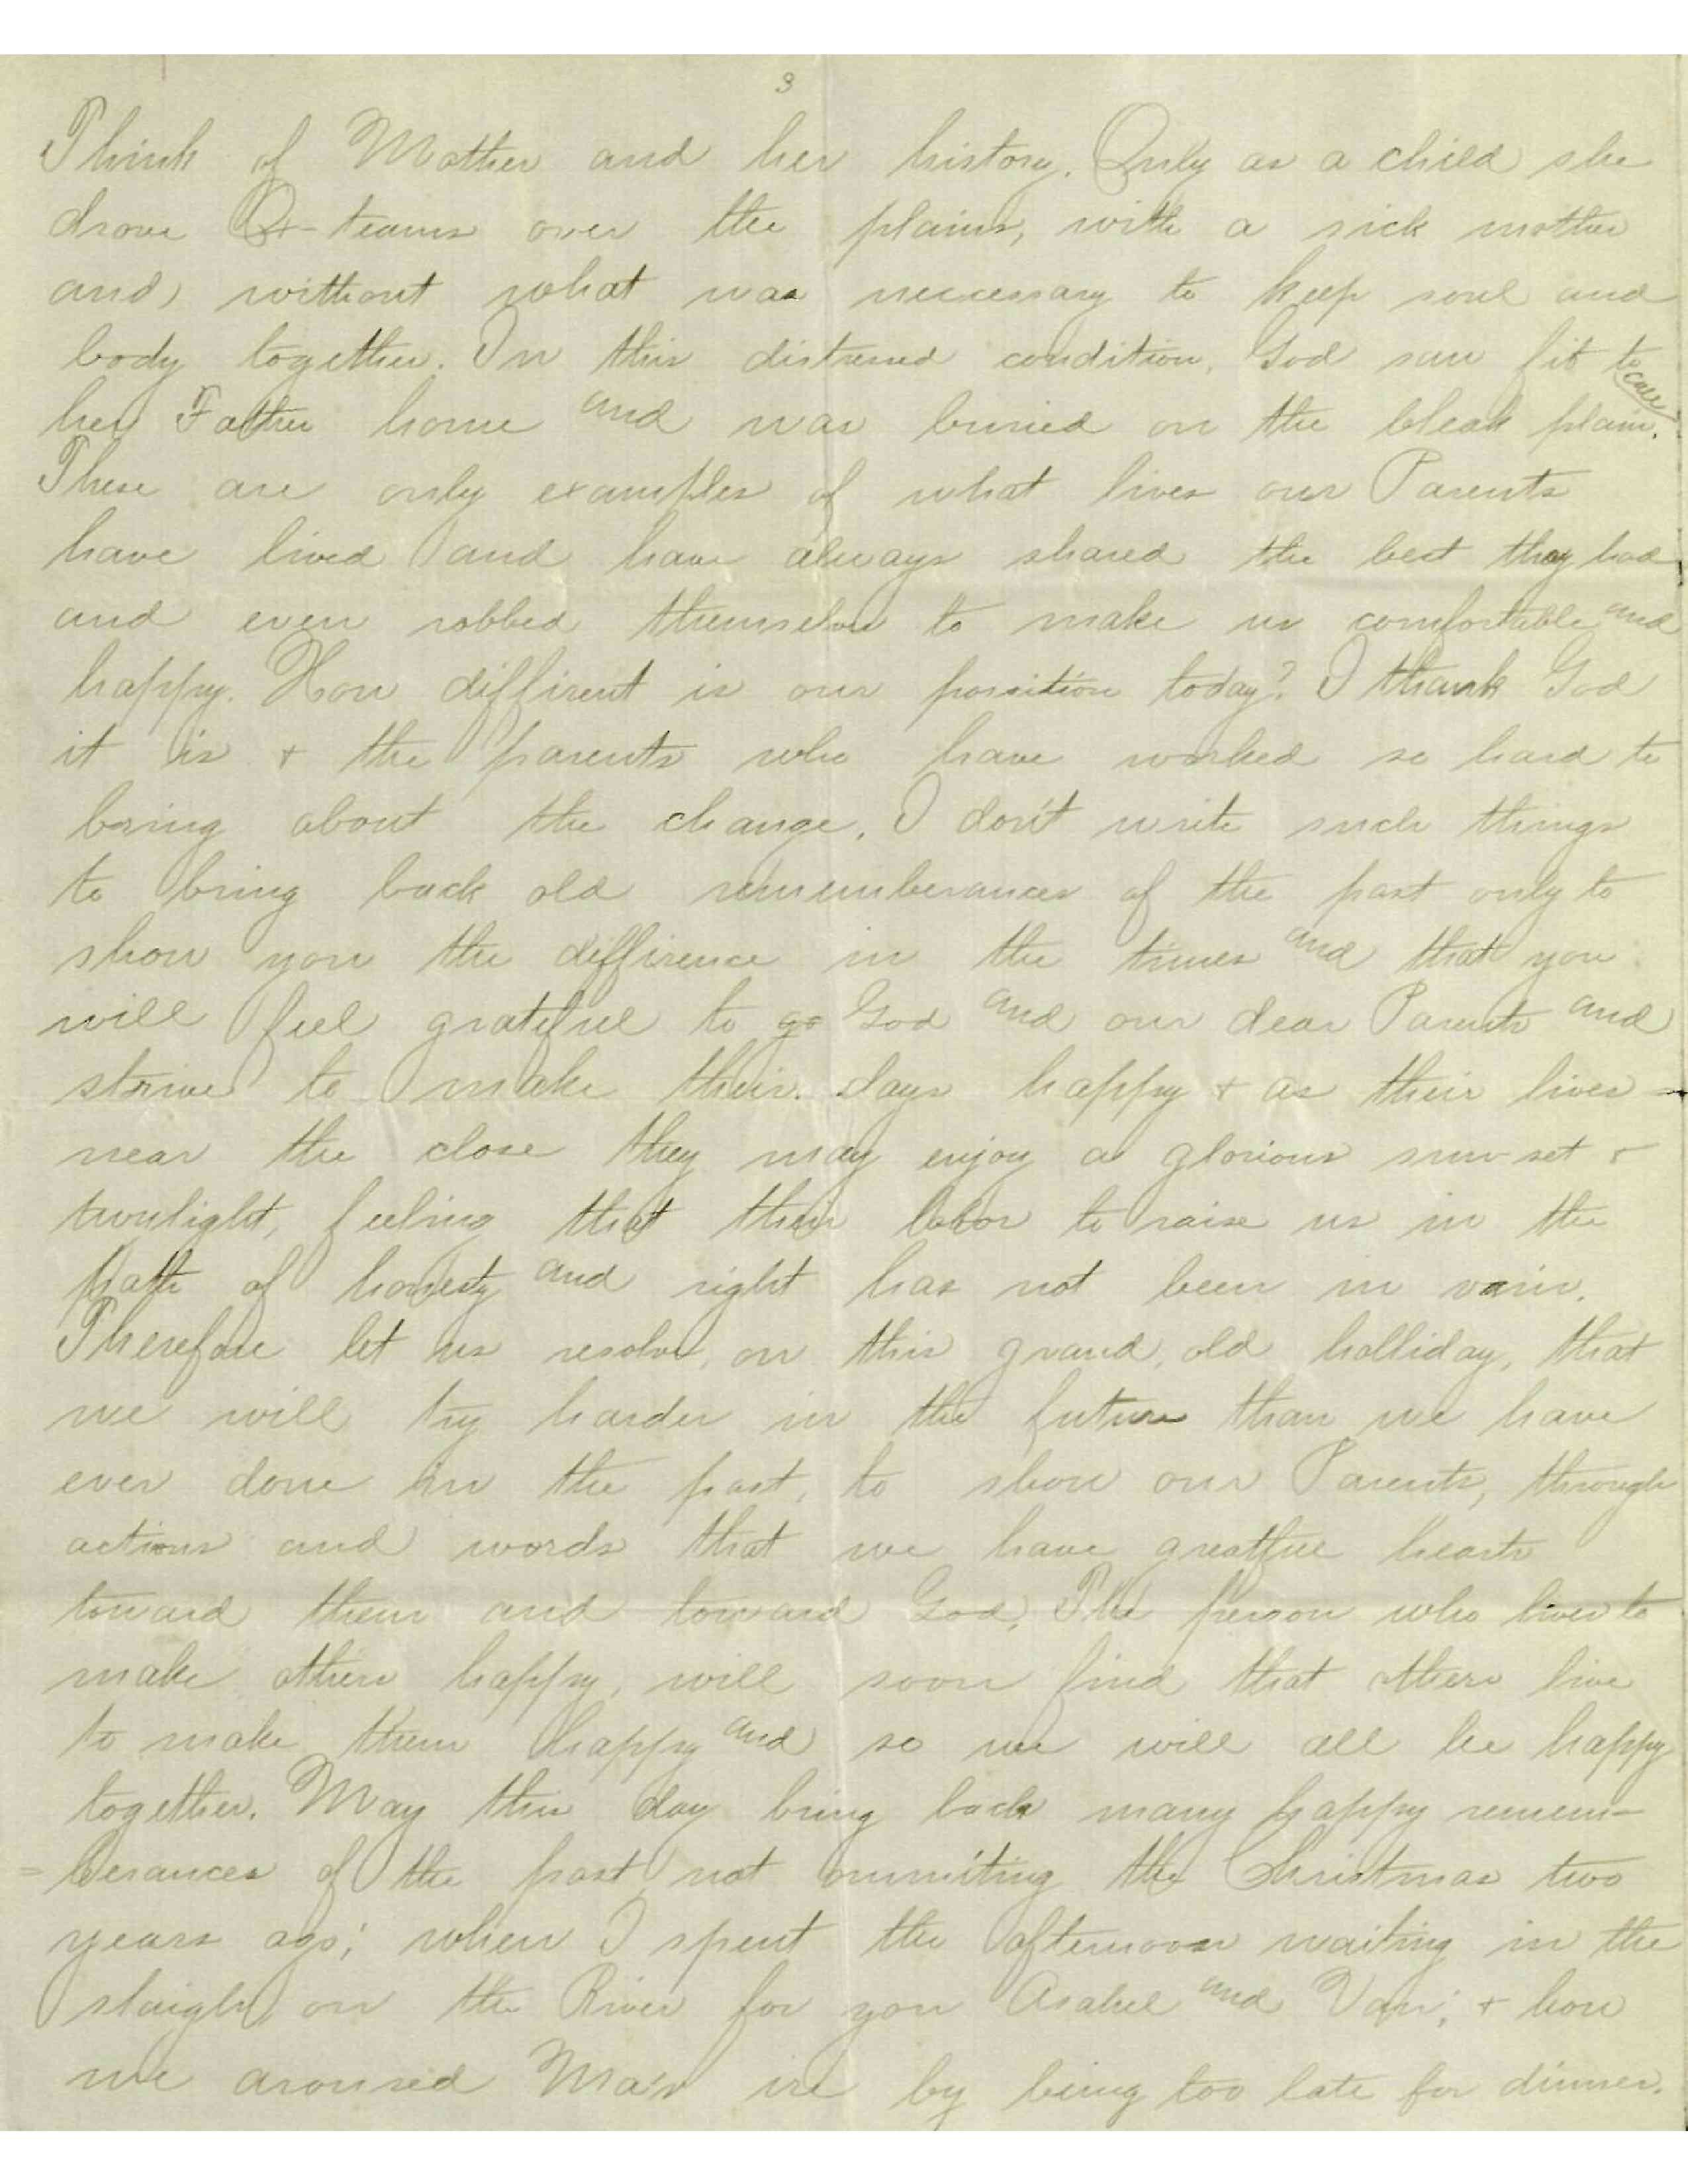 3
Think of Mother and her history. Only as a child she
drove Ox-teams over the plains, with a sick mother
and, without what was neccessary to keep soul and
body together. In this distressed condition, God saw fit to call
her Father home and was buried on the bleak plain.
These are only examples of what lives our Parents
have lived and have always shared the best they had
and even robbed themselves to make us comfortable and
happy. How diffirent is our possition today? I thank God
it is + the parents who have worked so hard to
bring about the change. I don't write such things
to bring back old rememberances of the past only to
show you the diffirence in the times and that you
will feel grateful to go God and our dear Parents and
strive to make their days happy + as their lives
near the close they may enjoy a glorious sun-set +
twilight, feeling that their labor to raise us in the
path of honesty and right has not been in vain.
Therefore let us resolve, on this grand, old holliday, that
we will try harder in the future than we have
ever done in the past, to show our Parents, through
actions and words that we have greatful hearts
toward them and toward God. The person who lives to
make others happy, will soon find that others live
to make them happy and so we will all be happy
together. May this day bring back many happy remem-
=berances of the past not ommiting the Christmas two
years ago; when I spent the afternoon waiting in the
slaigh on the River for you Asahel and Van; + how
we aroused Ma's ire by being too late for dinner.